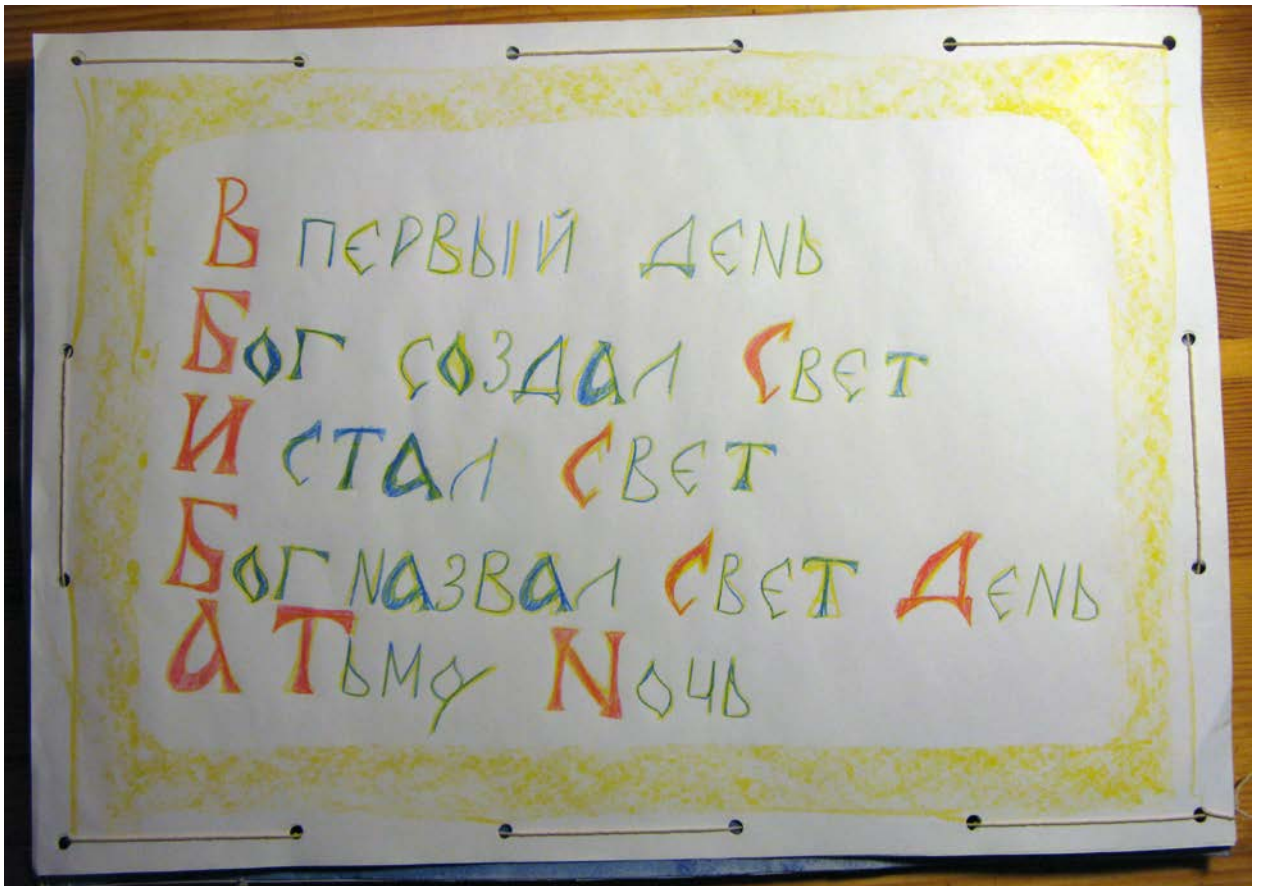 В ПЕРВЫЙ ДЕNЬ
БОГ СОЗДАЛ СВЕТ
И СТАЛ СВЕТ
БОГ NАЗВАЛ СВЕТ ДЕNЬ
А ТЬМУ NОЧЬ